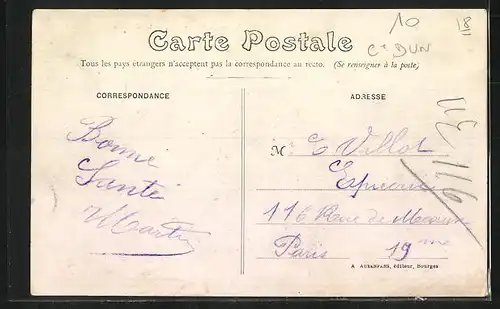 10
18
Cᵗ DUN
Carte Postale
Tous les pays étrangers n'acceptent pas la correspondance au recto. (Se renseigner à la poste)
CORRESPONDANCE
ADRESSE
Bonne
Santé
Martin
M. E Villot
Epicerie
116 Rue de
Paris 19me
116
A AUXENFANS, éditeur, Bourges